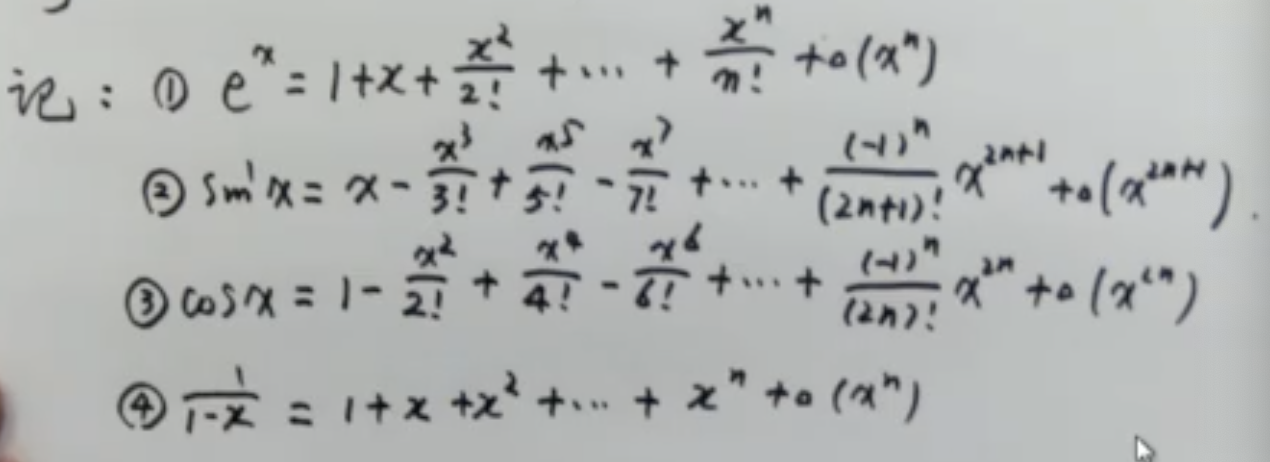 记：① e^x = 1+x+ x²/2! + ··· + x^n/n! + o(x^n)
② sin x = x - x³/3! + x⁵/5! - x⁷/7! + ··· + (-1)^n/(2n+1)! x^(2n+1) + o(x^(2n+1)).
③ cos x = 1 - x²/2! + x⁴/4! - x⁶/6! + ··· + (-1)^n/(2n)! x^(2n) + o(x^(2n))
④ 1/(1-x) = 1+x+x² + ··· + x^n + o(x^n)